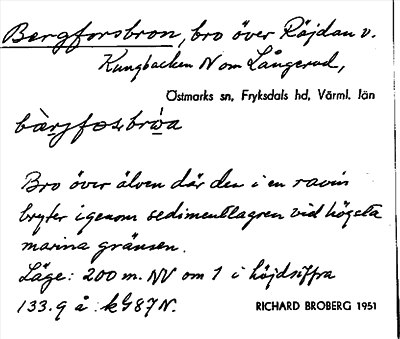 Bergforsbron, bro över Röjdan v.
Kungbacken N om Långerud,
Östmarks sn, Fryksdals hd, Värml. län
Bro över älven där den i en ravin
bryter igenom sedimentlagren vid högsta
marina gränsen.
Läge: 200 m. NV om 1 i höjdsiffra
133.9 å : kG87N.
RICHARD BROBERG 1951